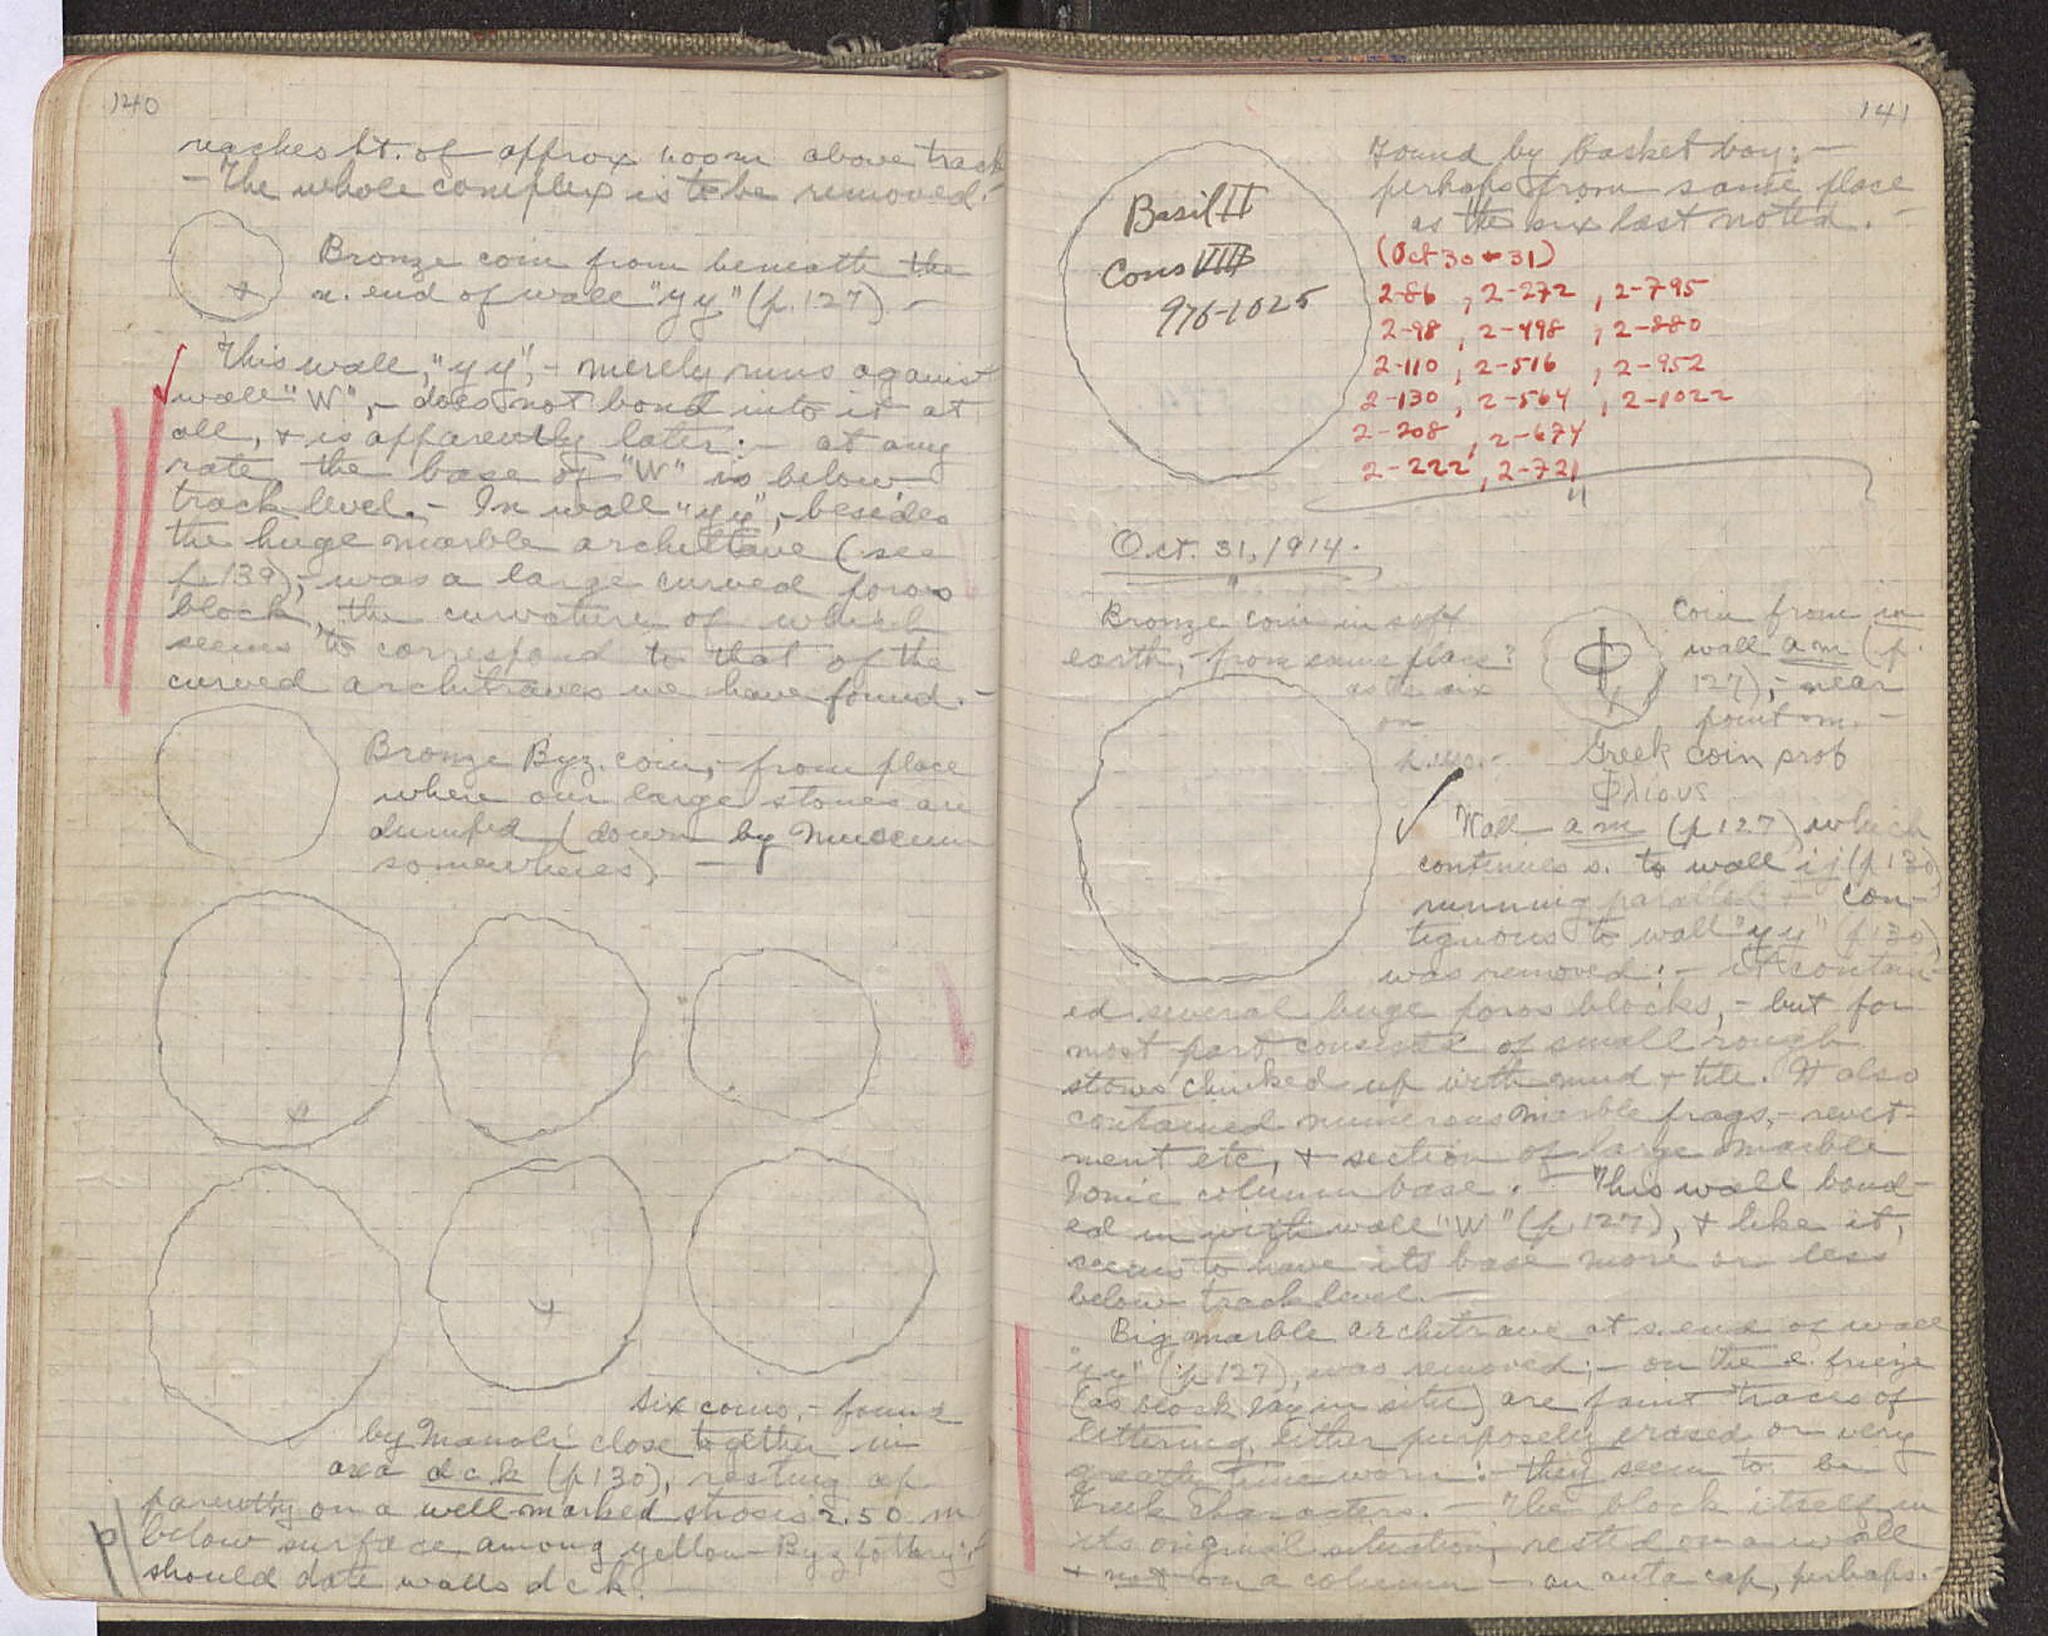 140
reaches ht. of approx 1.00m above track
– The whole complex is to be removed. –
Bronze coin from beneath the
n. end of wall "yy" (p.127) –
This wall, "yy", – merely runs against
wall "W", – does not bond into it at
all, + is apparently later: – at any
rate the base of "W" is below
track level. – In wall "yy", – besides
the huge marble architrave (see
p.139), – was a large curved poros
block, the curvature of which
seems to correspond to that of the
curved architraves we have found. –
Bronze Byz. coin, – from place
where our large stones are
dumped (down by Museum
somewheres). –
Six coins, – found
by Manoli close together in
area dck (p130), resting ap-
parently on a well-marked strosis 2.50 m
below surface among yellow Byz pottery: –
should date walls dck. –
141
Found by basket boy: –
perhaps from same place
as the six last noted. –
Basil II
Cons VIII
976-1025
(Oct 30 + 31)
2-86 , 2-272 , 2-795
2-98 , 2-498 , 2-880
2-110 , 2-516 , 2-952
2-130 , 2-564 , 2-1022
2-208 , 2-674
2-222 , 2-721
Oct. 31, 1914.
Bronze coin in soft
earth, – from same place?
as the six
on
p.140. –
Coin from in
wall am (p.
127), – near
point m. –
Greek coin prob
Φλιους
Wall am (p127) which
continues s. to wall ij (p130)
running parallel + con-
tiguous to wall "yy" (p130),
was removed: – it contain-
ed several huge poros blocks, – but for
most part consisted of small rough
stones chinked up with mud + tile. It also
contained numerous marble frags, – revet-
ment etc, + section of large marble
Ionic column base. – This wall bond-
ed in with wall "W" (p.127), + like it,
seems to have its base more or less
below track level. –
Big marble architrave at s. end of wall
"yy" (p127), was removed; – on the e. frieze
(as block lay in situ) are faint traces of
lettering, either purposely erased or very
time worn: – they seem to be
Greek characters. – The block itself in
its original situation, rested on a wall
+ not on a column – an anta cap, perhaps. –